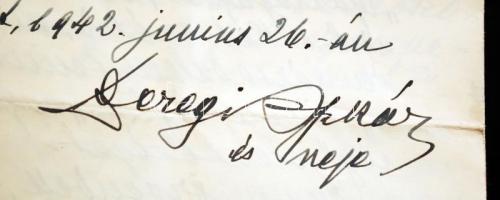 1942. junius 26.-án
Doregi Oszkár
és neje